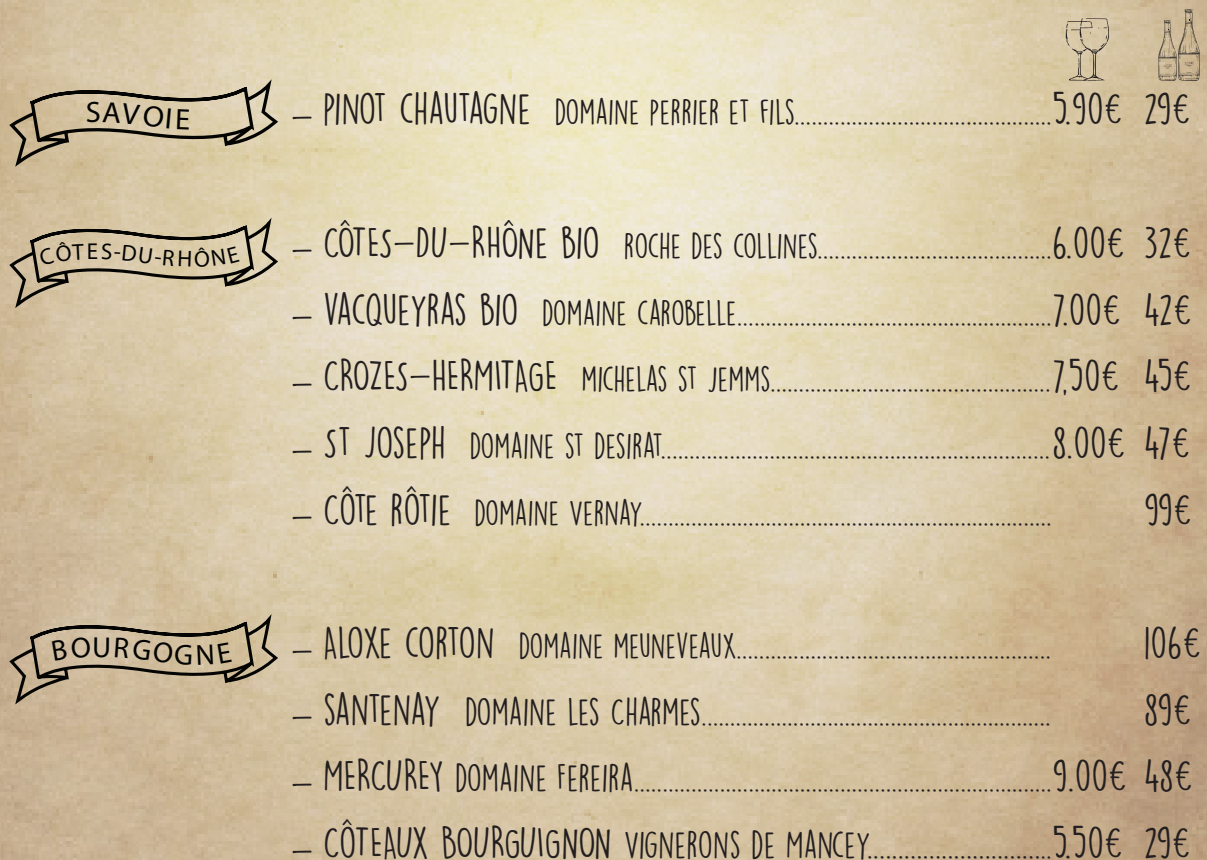 SAVOIE
– PINOT CHAUTAGNE DOMAINE PERRIER ET FILS 5.90€ 29€
CÔTES-DU-RHÔNE
– CÔTES–DU–RHÔNE BIO ROCHE DES COLLINES 6.00€ 32€
– VACQUEYRAS BIO DOMAINE CAROBELLE 7.00€ 42€
– CROZES–HERMITAGE MICHELAS ST JEMMS 7,50€ 45€
– ST JOSEPH DOMAINE ST DESIRAT 8.00€ 47€
– CÔTE RÔTIE DOMAINE VERNAY 99€
BOURGOGNE
– ALOXE CORTON DOMAINE MEUNEVEAUX 106€
– SANTENAY DOMAINE LES CHARMES 89€
– MERCUREY DOMAINE FEREIRA 9.00€ 48€
– CÔTEAUX BOURGUIGNON VIGNERONS DE MANCEY 5.50€ 29€